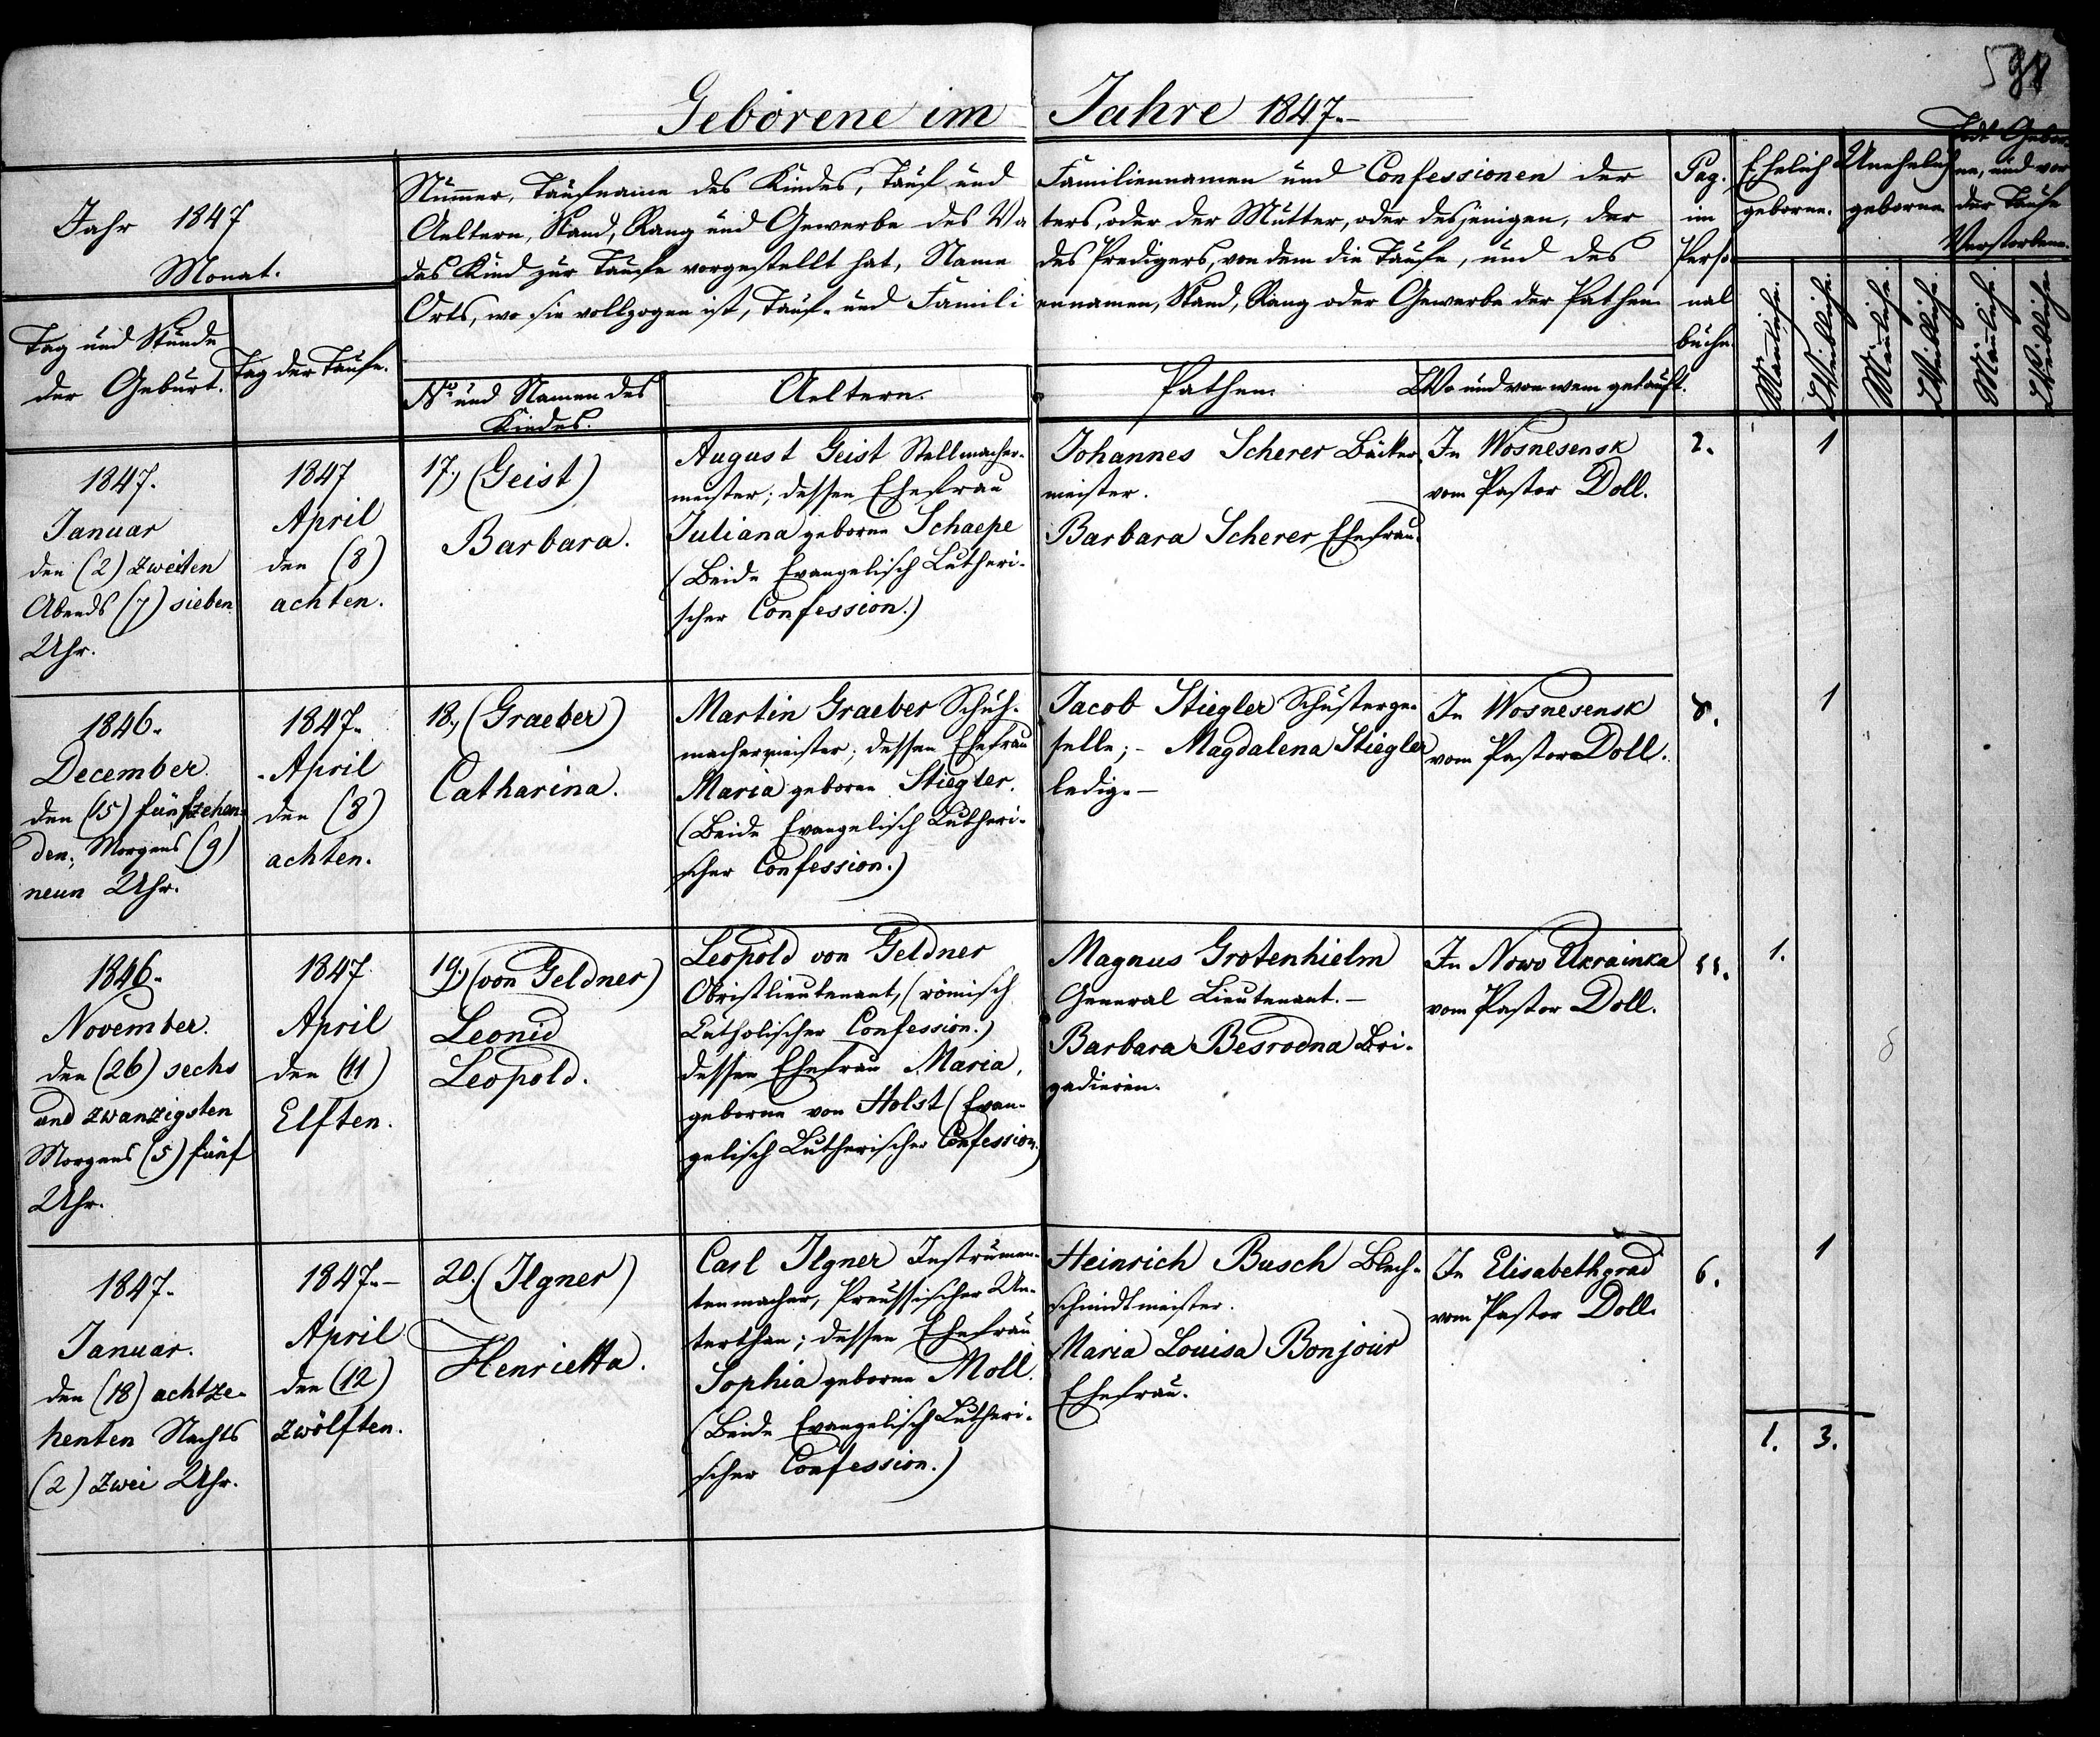 598
Geborene im Jahre 1847.-
Jahr 1847
Monat.
Tag und Stunde
der Geburt.
Tag der Taufe.
Nummer, Taufname des Kindes, Tauf und Familiennamen und Confessionen der
Aeltern, Stand, Rang und Gewerbe des Vaters, oder der Mutter, oder desjenigen, der
das Kind zur Taufe vorgestellt hat, Name des Predigers, von dem die Taufe, und des
Orts, wo sie vollzogen ist, Tauf- und Familiennamen, Stand, Rang oder Gewerbe der Pathen.
No und Namen des
Kindes.
Aeltern.
Pathen.
Wo und von wem getauft.
Pag.
im
Perso-
nal
buche.
Ehelich
geborne.
Unehelich
geborne.
Todt Gebor-
ne, und vor
der Taufe
Verstorbene.
Männliche.
Weibliche.
Männliche.
Weibliche.
Männliche.
Weibliche.
1847.
Januar
den (2) zweiten
Abends (7) sieben
Uhr.
1847
April
den (8)
achten.
17.) (Geist)
Barbara.
August Geist Stellmacher-
meister; dessen Ehefrau
Juliana geborne Schaepe
(Beide Evangelisch Lutheri-
scher Confession.)
Johannes Scherer Bäcker
meister.
Barbara Scherer Ehefrau.
In Wosnesensk
vom Pastor Doll.
2.
1
1846.
December.
den (15) fünfzehen-
den, Morgens (9)
neun Uhr.
1847.
April
den (8)
achten.
18.) (Graeber)
Catharina.
Martin Graeber Schuh-
machermeister; dessen Ehefrau
Maria geborne Stiegler.
(Beide Evangelisch Lutheri-
scher Confession.)
Jacob Stiegler Schusterge-
selle; - Magdalena Stiegler
ledig. -
In Wosnesensk
vom Pastor Doll.
8.
1
1846.
November.
den (26) sechs
und zwanzigsten
Morgens (5) fünf
Uhr.
1847.
April
den (11)
Elften.
19.) (von Geldner)
Leonid
Leopold.
Leopold von Geldner
Obristlieutenant, (römisch
Catholischer Confession.)
dessen Ehefrau Maria,
geborne von Holst (Evan-
gelisch Lutherischer Confession.)
Magnus Grotenhielm
General Lieutenant. -
Barbara Besrodna Bri-
gadierin.
In Nowo Ukrainka
vom Pastor Doll.
11.
1.
1847.
Januar.
den (18) achtze-
henten Nachts
(2) zwei Uhr.
1847. -
April
den (12)
zwölften.
20.) (Ilgner)
Henrietta.
Carl Ilgner Instrumen-
tenmacher, Preussischer Un-
terthan; dessen Ehefrau
Sophia geborne Moll.
(Beide Evangelisch Lutheri-
scher Confession.)
Heinrich Busch Blech-
schmidtmeister.
Maria Louisa Bonjour
Ehefrau.
In Elisabethgrad
vom Pastor Doll.
6.
1
1. 3.